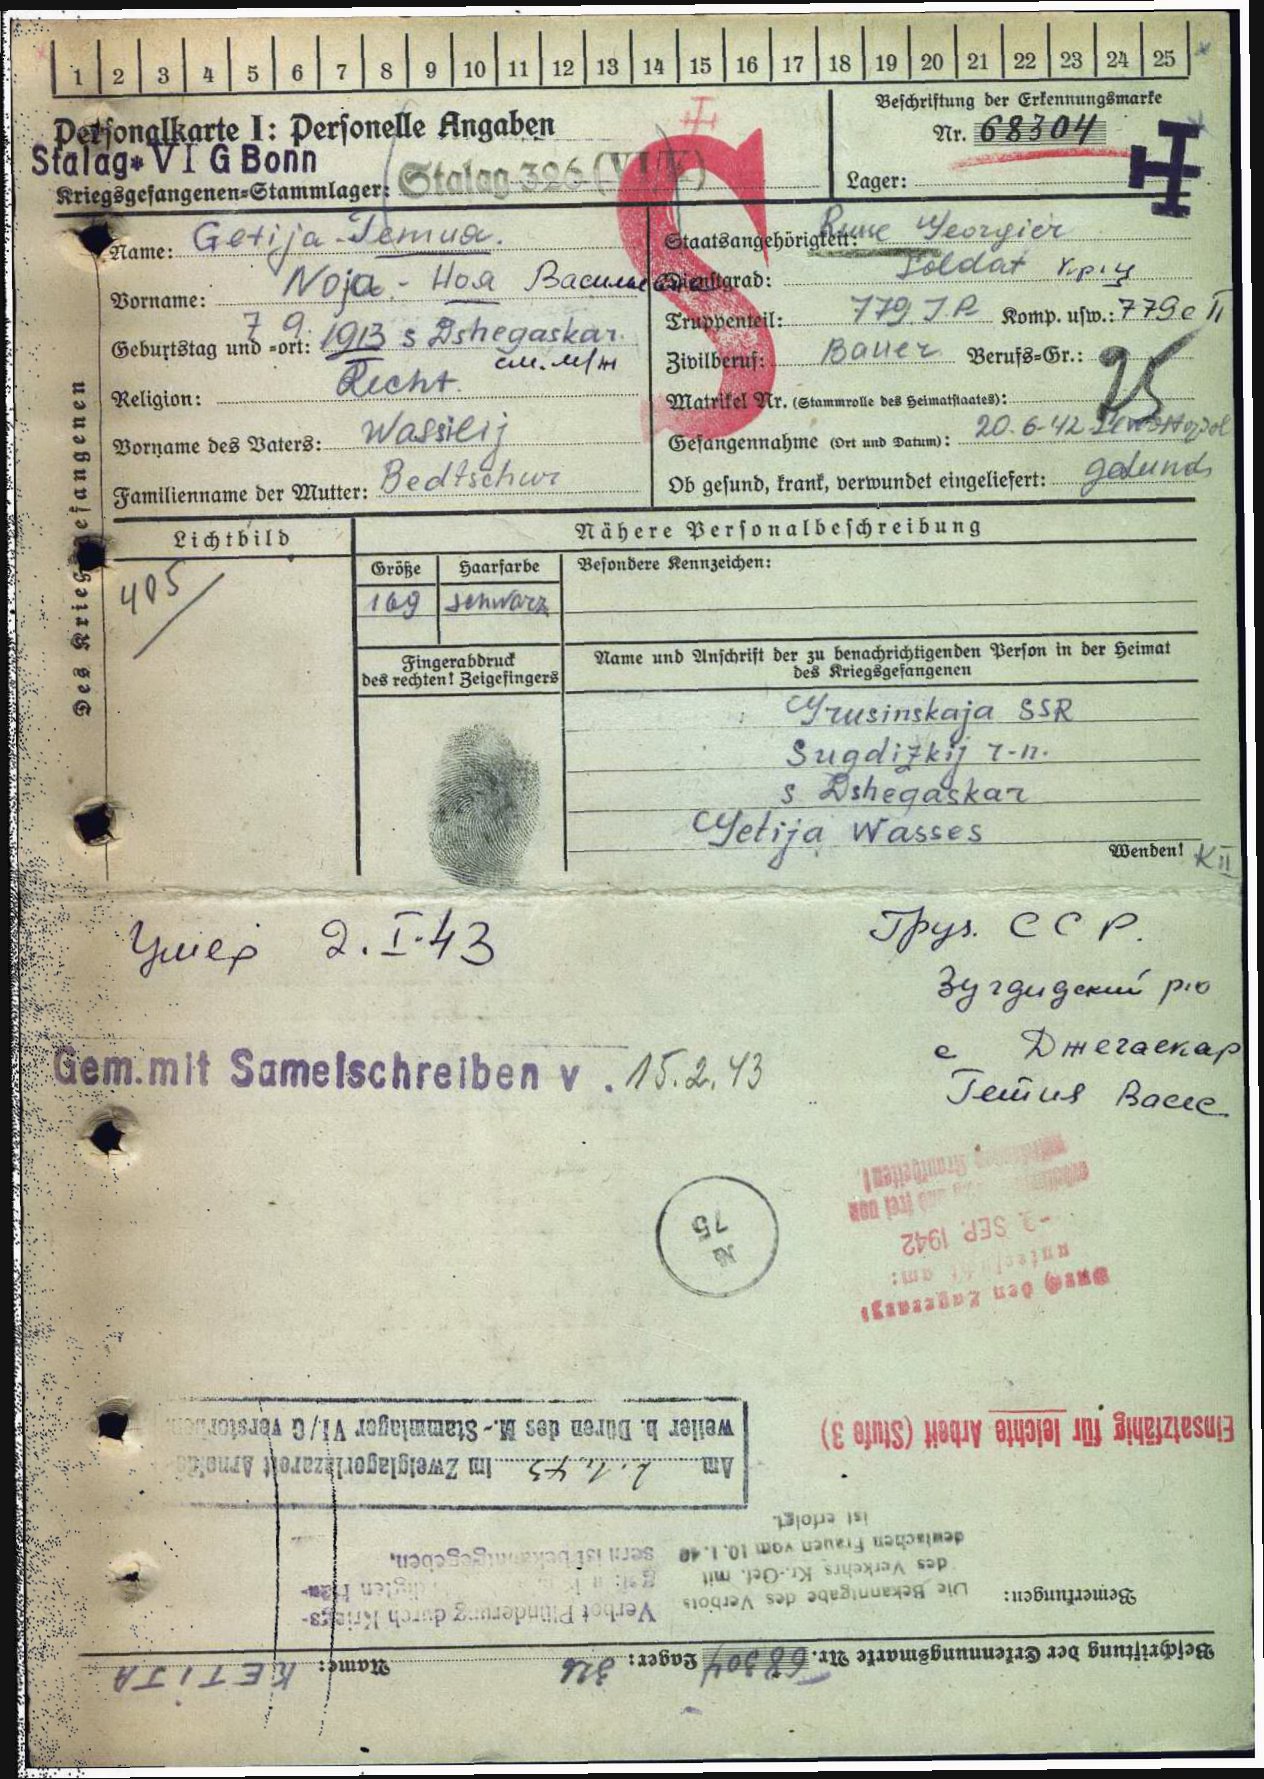 1 2 3 4 5 6 7 8 9 10 11 12 13 14 15 16 17 18 19 20 21 22 23 24 25
Personalkarte I: Personelle Angaben
Stalag VI G Bonn
Kriegsgefangenen-Stammlager: Stalag 326 (VI/K)
Beschriftung der Erkennungsmarke
Nr. 68304
Lager:
S
Des Kriegsgefangenen
Name: Getija - Гетиа.
Vorname: Noja - Ноя Василье
Geburtstag und -ort: 7 9. 1913 s Dshegaskar.
см. м/ж
Religion: Recht.
Vorname des Vaters: Wassilij
Familienname der Mutter: Bedtschur
Staatsangehörigkeit: Russe Georgier
Dienstgrad: Soldat кр-ц
Truppenteil: 779 J.R Komp. usw.: 779 с П
Zivilberuf: Bauer Berufs-Gr.:
Matrikel Nr. (Stammrolle des Heimatstaates):
Gefangennahme (Ort und Datum): 20.6.42 Sewastopol
Ob gesund, krank, verwundet eingeliefert: gesund
Lichtbild
405
Nähere Personalbeschreibung
Größe Haarfarbe Besondere Kennzeichen:
169 schwarz
Fingerabdruck
des rechten! Zeigefingers
Name und Anschrift der zu benachrichtigenden Person in der Heimat
des Kriegsgefangenen
Grusinskaja SSR
Sugdizkij r-n.
s Dshegaskar
Getija Wasses
Wenden! K II
Умер 2.I.43
Груз. С С Р.
Зугдидский р-о
с Джегаскар
Гетия Васес
Gem. mit Samelschreiben v. 15.2.43
№
75
Durch den Lagerarzt
untersucht am:
-3. SEP. 1942
und frei von
ansteckenden Krankheiten!
Einsatzfähig für leichte Arbeit (Stufe 3)
Am 2.1.43 im Zweiglagerlazarett Arnolds-
weiler b. Düren des M.-Stammlager VI/G verstorben
Beschriftung der Erkennungsmarke Nr. 68304 Lager: 326 Name: KETIJA
Bemerkungen:
Die Bekanntgabe des Verbots
des Verkehrs Kr.-Gef. mit
deutschen Frauen vom 10.1.40
ist erfolgt.
Verbot Plünderung durch Kriegs-
sern ist bekanntgegeben.